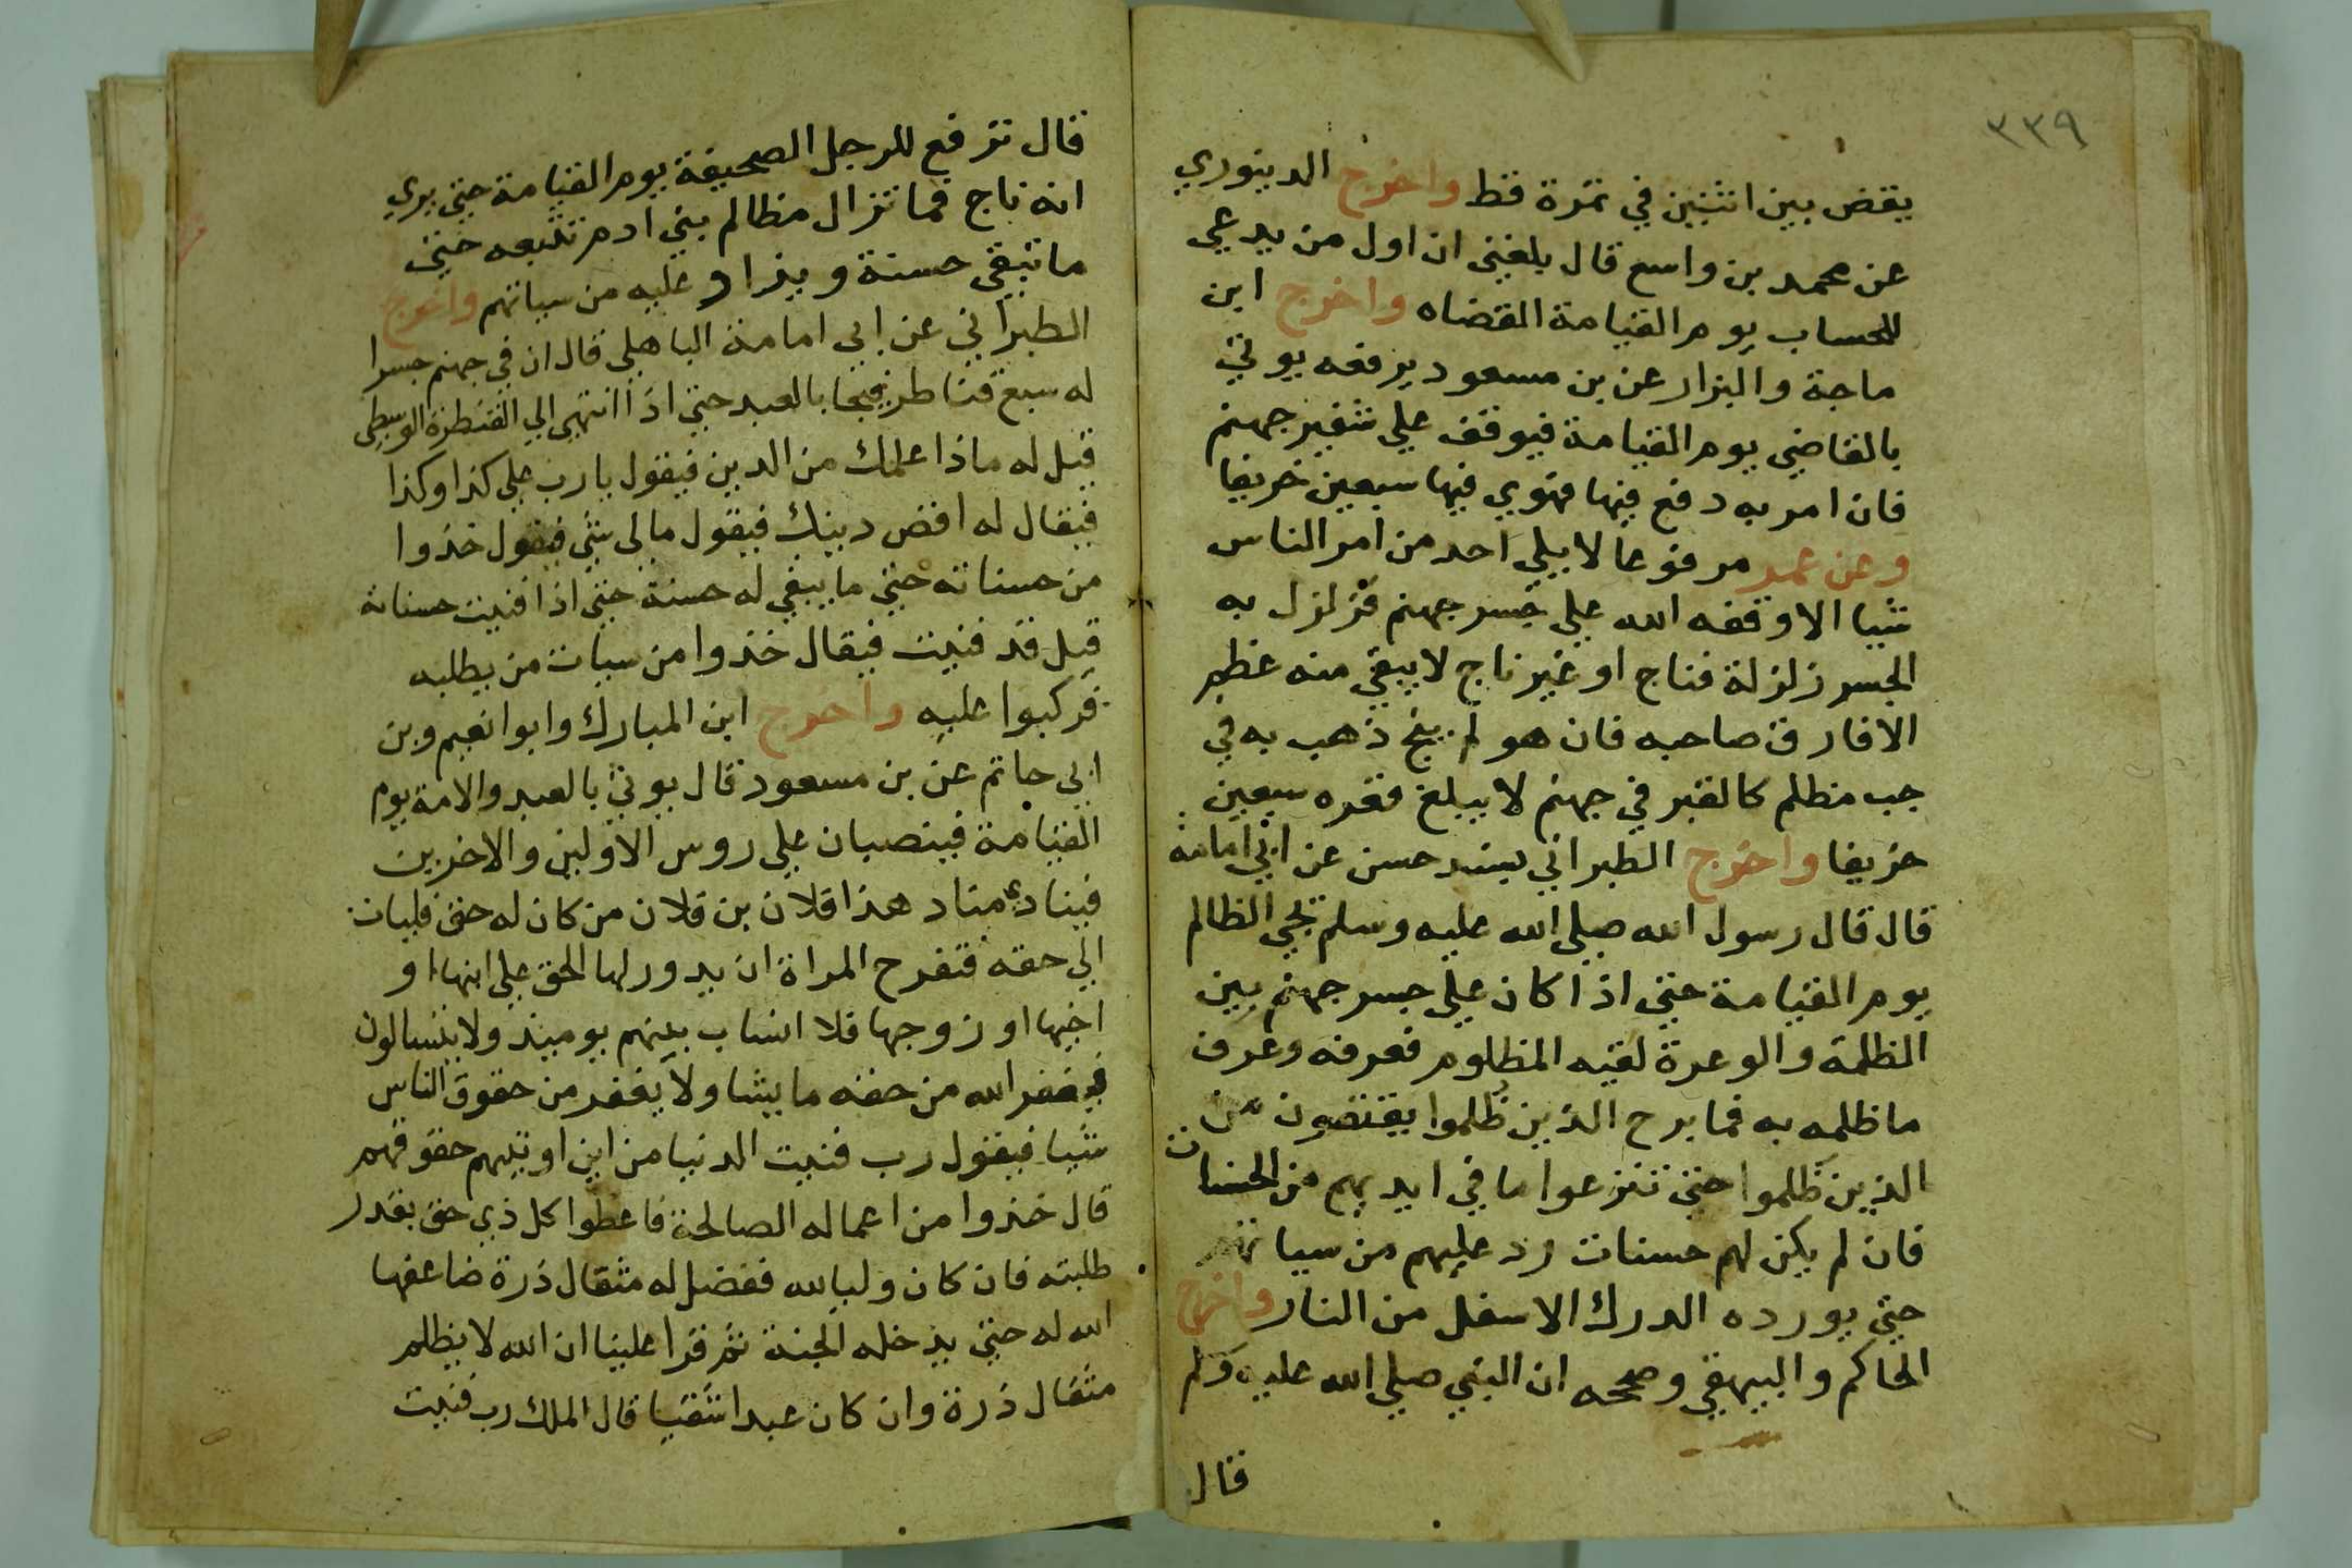 ٣٣٩
يقض بين اثنين في تمرة قط واخرج الدينوري
عن محمد بن واسع قال بلغني ان اول من يدعي
للحساب يوم القيامة القضاه واخرج ابن
ماجة والبزار عن بن مسعود يرفعه يوتي
بالقاضي يوم القيامة فيوقف علي شفير جهنم
فان امر به دفع فيها فهوي فيها سبعين خريفا
وعن عمر مرفوعا لا يلي احد من امر الناس
شيا الا وقفه الله علي جسر جهنم فزلزل به
الجسر زلزلة فناج او غير ناج لا يبقي منه عظم
الا فارق صاحبه فان هو لم ينج ذهب به في
جب مظلم كالقبر في جهنم لا يبلغ قعره سبعين
خريفا واخرج الطبراني بسند حسن عن ابي امامة
قال قال رسول الله صلي الله عليه وسلم يجي الظالم
يوم القيامة حتي اذا كان علي جسر جهنم بين
الظلمة والوعرة لقيه المظلوم فعرفه وعرف
ما ظلمه به فما برح الذين ظُلموا يقتصون من
الذين ظَلموا حتي تنزعوا ما في ايديهم من الحسنات
فان لم يكن لهم حسنات رد عليهم من سياتهم
حتي يورده الدرك الاسفل من النار واخرج
الحاكم والبيهقي وصححه ان النبي صلي الله عليه وسلم
قال
قال ترفع للرجل الصحيفة يوم القيامة حتي يري
انه ناج فما تزال مظالم بني ادم تتبعه حتي
ما تبقي حسنة ويزاد عليه من سياتهم واخرج
الطبراني عن ابي امامة الباهلي قال ان في جهنم جسرا
له سبع قناطر فيجا بالعبد حتي اذا انتهي الي القنطرة الوسطي
قيل له ماذا عليك من الدين فيقول يا رب علي كذا وكذا
فيقال له اقض دينك فيقول مالي شي فيقول خذوا
من حسناته حتي ما يبقي له حسنة حتي اذا فنيت حسناته
قيل قد فنيت فيقال خذوا من سيات من يطلبه
فركبوا عليه واخرج ابن المبارك وابوا نعيم وبن
ابي حاتم عن بن مسعود قال يوتي بالعبد والامة يوم
القيامة فينصبان علي روس الاولين والاخرين
فينادي مناد هذا فلان بن فلان من كان له حق فليات
الي حقه فتفرح المراة ان يدور لها الحق علي ابنها او
اخيها او زوجها فلا انساب بينهم يوميذ ولا يتسالون
فيغفر الله من حقه ما يشا ولا يغفر من حقوق الناس
شيا فيقول رب فنيت الدنيا من اين اوتيهم حقوقهم
قال خذوا من اعماله الصالحة فاعطوا كل ذي حق بقدر
طلبته فان كان وليا لله ففضل له مثقال ذرة ضاعفها
الله له حتي يدخله الجنة ثم قرا علينا ان الله لا يظلم
مثقال ذرة وان كان عبدا شقيا قال الملك رب فنيت